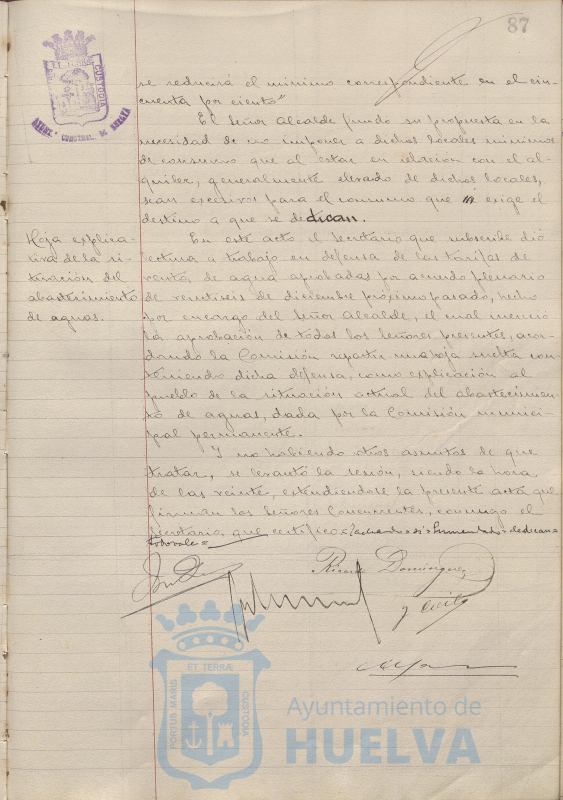 87
PORTUS MARIS ET TERRÆ CUSTODIA
AYUNT. CONSTNAL. DE HUELVA
se reducirá el mínimo correspondiente en el cin-
cuenta por ciento"
El Señor Alcalde fundó su propuesta en la
necesidad de no imponer a dichos locales mínimos
de consumo que al estar en relación con el al-
quiler, generalmente elevado de dichos locales,
sean excesivos para el consumo que exige el
destino a que se dedican.
Hoja explica-
tiva de la si-
tuación del
abastecimiento
de aguas.
En este acto el Secretario que subscribe dió
lectura a trabajo en defensa de las tarifas de
venta de agua aprobadas por acuerdo plenario
de veintiseis de diciembre próximo pasado, hecho
por encargo del Señor Alcalde, el cual mereció
la aprobación de todos los Señores presentes, acor-
dando la Comisión repartir una hoja suelta con-
teniendo dicha defensa, como explicación al
pueblo de la situación actual del abastecimien-
to de aguas, dada por la Comisión munici-
pal permanente.
Y no habiendo otros asuntos de que
tratar, se levantó la sesión, siendo la hora
de las veinte, extendiendose la presente acta que
firman los Señores Concurrentes, conmigo el
Secretario, que certifico =
Ricardo Domínguez
y
PORTUS MARIS ET TERRÆ CUSTODIA
Ayuntamiento de
HUELVA